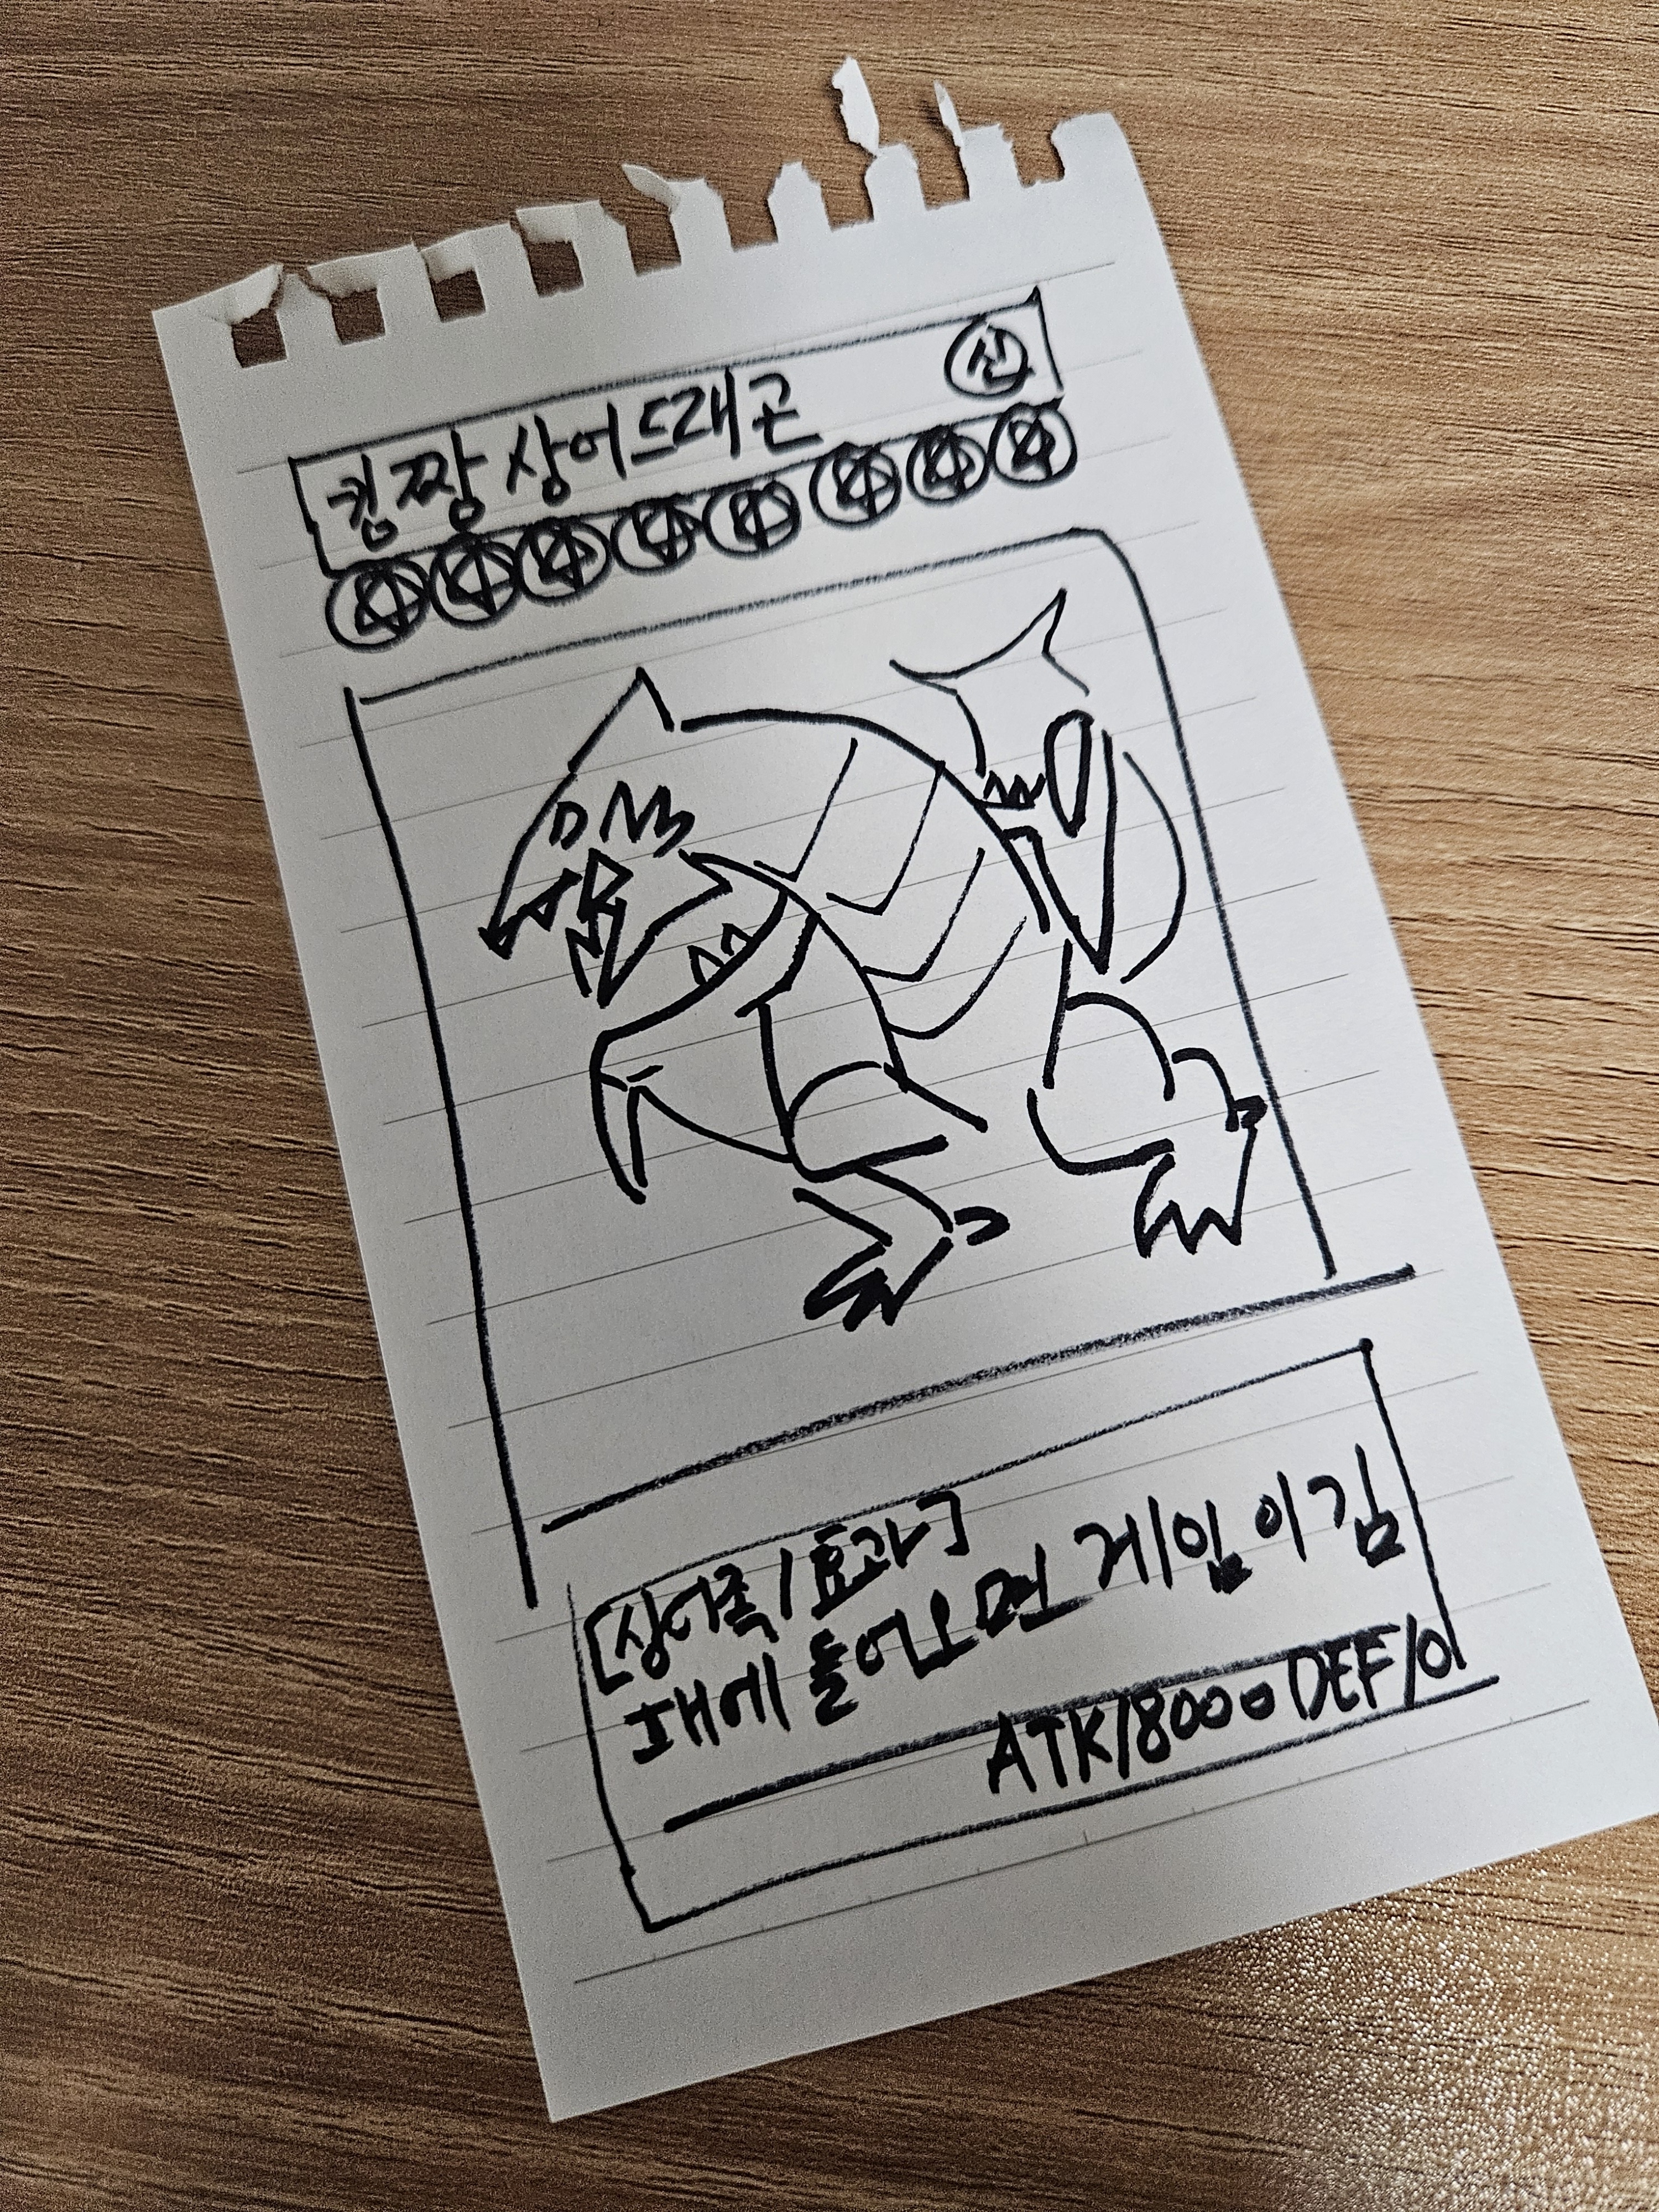 킹짱상어드래곤 신
[상어족/효과]
패에 들어오면 게임 이김
ATK/8000 DEF/0